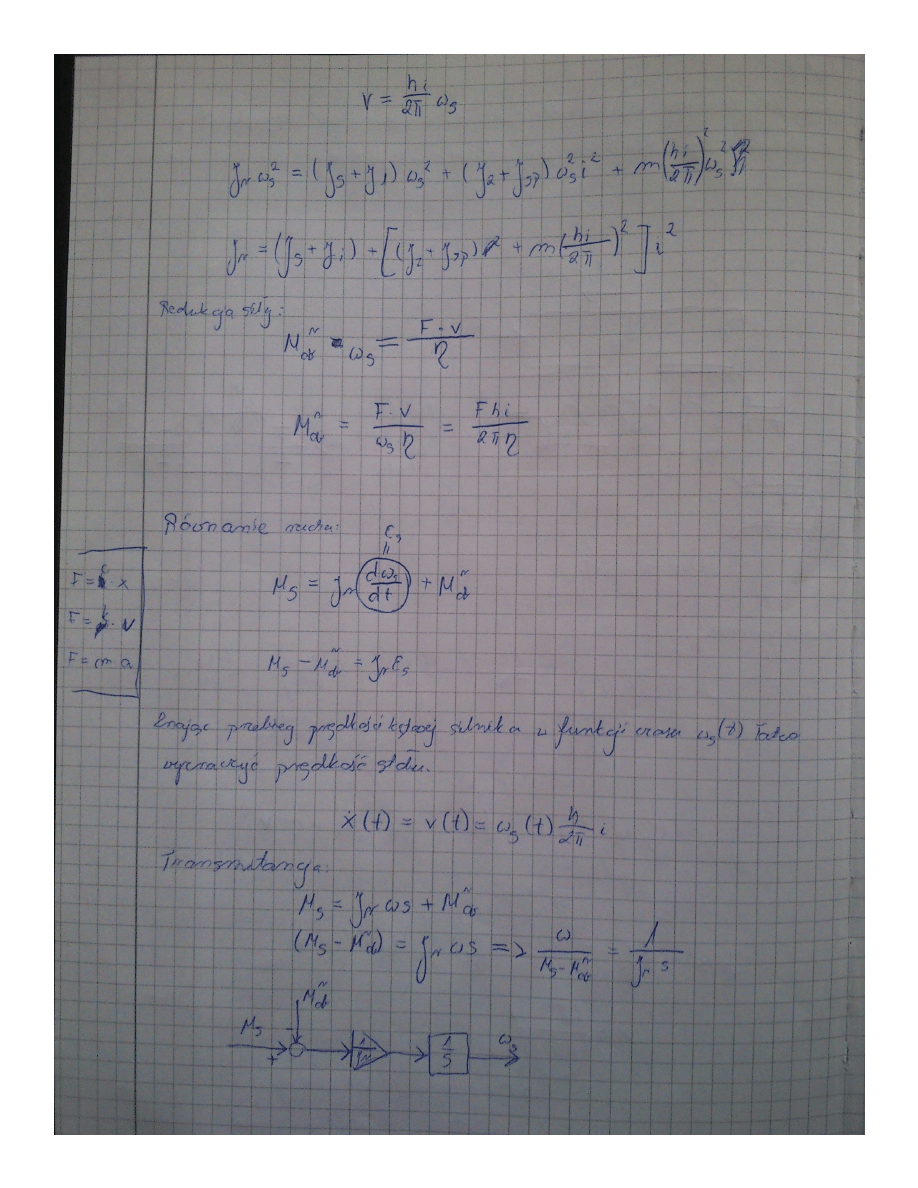 v = hi/2π ωs
Jr ωs² = (Js + J1) ωs² + (J2 + Jśp) ωs² i² + m(hi/2π)² ωs²
Jr = (Js + J1) + [(J2 + Jśp) + m(hi/2π)²] i²
Redukcja siły:
M̃ᵣob ωs = F·v/η
Mʳob = F·v/ωs η = F h i/2π η
Równanie ruchu:
εs
=
Ms = Jr dωs/dt + Mʳob
F = c · x
F = k · v
F = m a
Ms − Mʳob = Jr εs
Znając przebieg prędkość kątowej silnika w funkcji czasu ωs(t) łatwo
wyznaczyć prędkość stołu.
ẋ(t) = v(t) = ωs(t) h/2π i
Transmitancja:
Ms = Jr ωs + Mʳob
(Ms − Mʳob) = Jr ωs => ω/Ms−Mʳob = 1/Jr s
Mʳob
Ms − + 1/Jr 1/s ωs